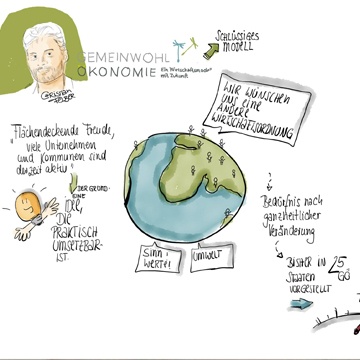 SCHLÜSSIGES
MODELL
GEMEINWOHL
ÖKONOMIE
Ein Wirtschaftsmodell
mit Zukunft
CHRISTIAN
FELBER
"Flächendeckende Freude,
viele Unternehmen
und Kommunen sind
derzeit aktiv"
WIR WÜNSCHEN
UNS EINE
ANDERE
WIRTSCHAFTSORDNUNG
DER GRUND:
EINE
IDEE,
DIE
PRAKTISCH
UMSETZBAR
IST.
SINN +
WERTE!
UMWELT
Bedürfnis nach
ganzheitlicher
Veränderung
BISHER IN 25
STAATEN
VORGESTELLT